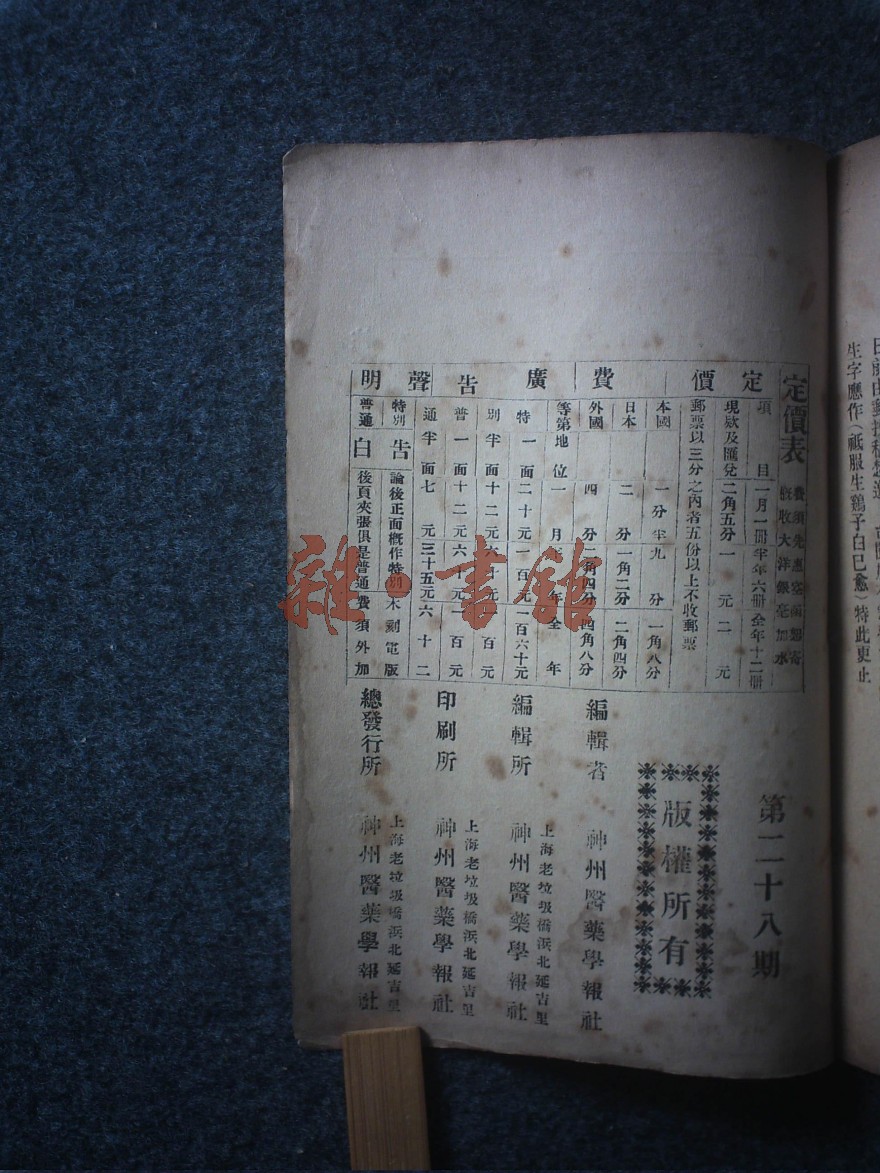 生字應作(祗服生鷄予白已愈)特此更止
定價表
費須先惠
概收大洋銀毫加水
定價
項目 一月一冊 半年六冊 全年十二冊
現欵及匯兌 二角五分 一元 二元
郵票以三分之內者五份以上不收郵票
費
本國 一分半 九分 一角八分
日本 二分 一角二分 二角四分
外國 四分 二角四分 四角八分
廣告
等第 地位 一月 年 全年
特別 一面 二十元 一百元 一百六十元
半面 十二元 六十元 一百元
普通 一面 十二元 六十元 一百元
半面 七元 三十五元 六十二
聲明
特別 告白 論後正面概作特別木刻電版
普通 後頁夾張俱是普通費須外加
第二十八期
版權所有
編輯者 神州醫藥學報社
編輯所 上海老垃圾橋浜北延吉里
神州醫藥學報社
印刷所 上海老垃圾橋浜北延吉里
神州醫藥學報社
總發行所 上海老垃圾橋浜北延吉里
神州醫藥學報社
雜·書館